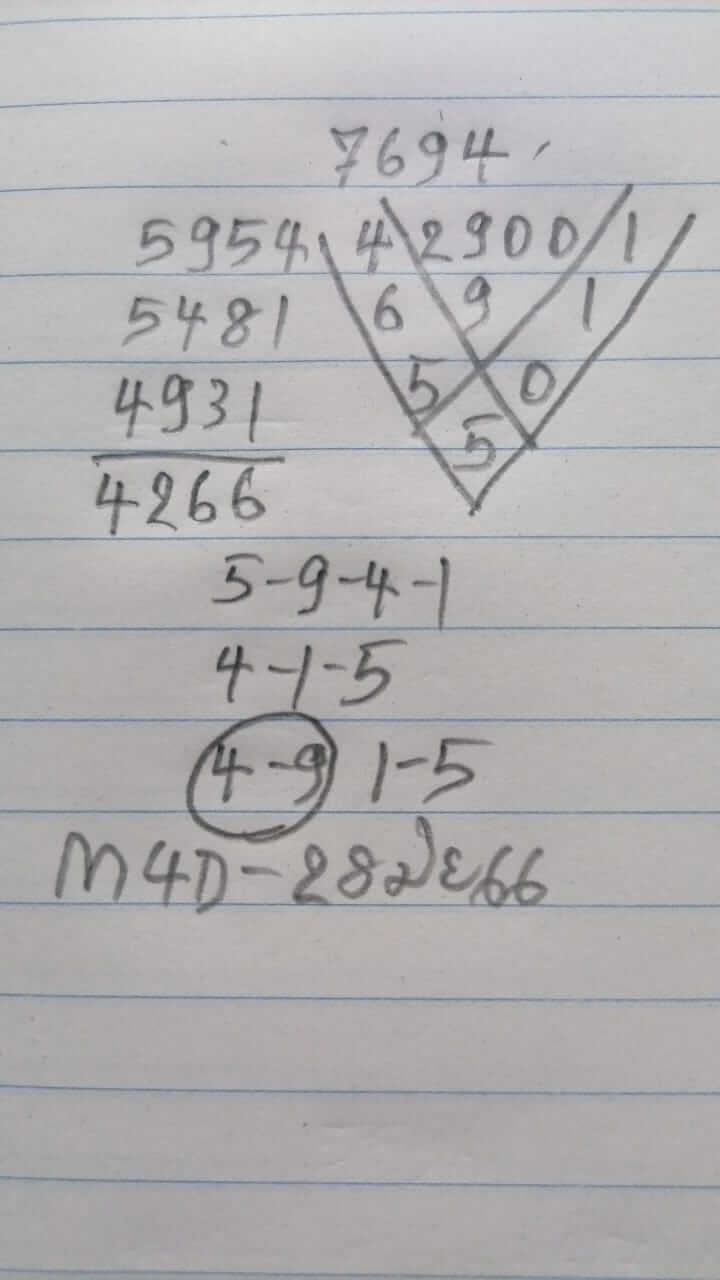 7694
5954 4 2900 1
5481 6 9 1
4931 5 0
4266 5
5-9-4-1
4-1-5
4-9 1-5
M4D-28 66